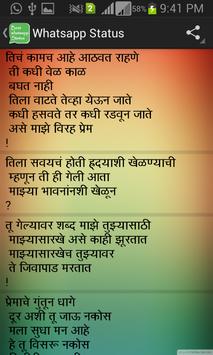 9:41 PM
Best
Whatsapp
Status
Whatsapp Status
तिचं कामच आहे आठवत राहणे
ती कधी वेळ काळ
बघत नाही
तिला वाटते तेव्हा येऊन जाते
कधी हसवते तर कधी रडवून जाते
असे माझे विरह प्रेम
!
तिला सवयचं होती ह्रदयाशी खेळण्याची
म्हणून ती ही गेली आता
माझ्या भावनांनशी खेळून
?
तू गेल्यावर शब्द माझे तुझ्यासाठी
माझ्यासारखे असे काही झूरतात
माझ्यासारखेच तुझ्यावर
ते जिवापाड मरतात
!
प्रेमाचे गुंतून धागे
दूर अशी तू जाऊ नकोस
मला सुधा मन आहे
हे तू विसरू नकोस